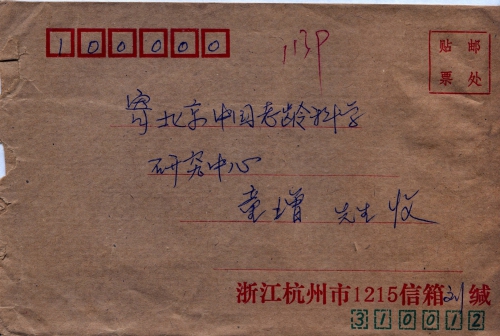 100000
113P
贴邮
票处
寄北京中国老龄科学
研究中心
童增 先生 收
浙江杭州市1215信箱刘缄
310012